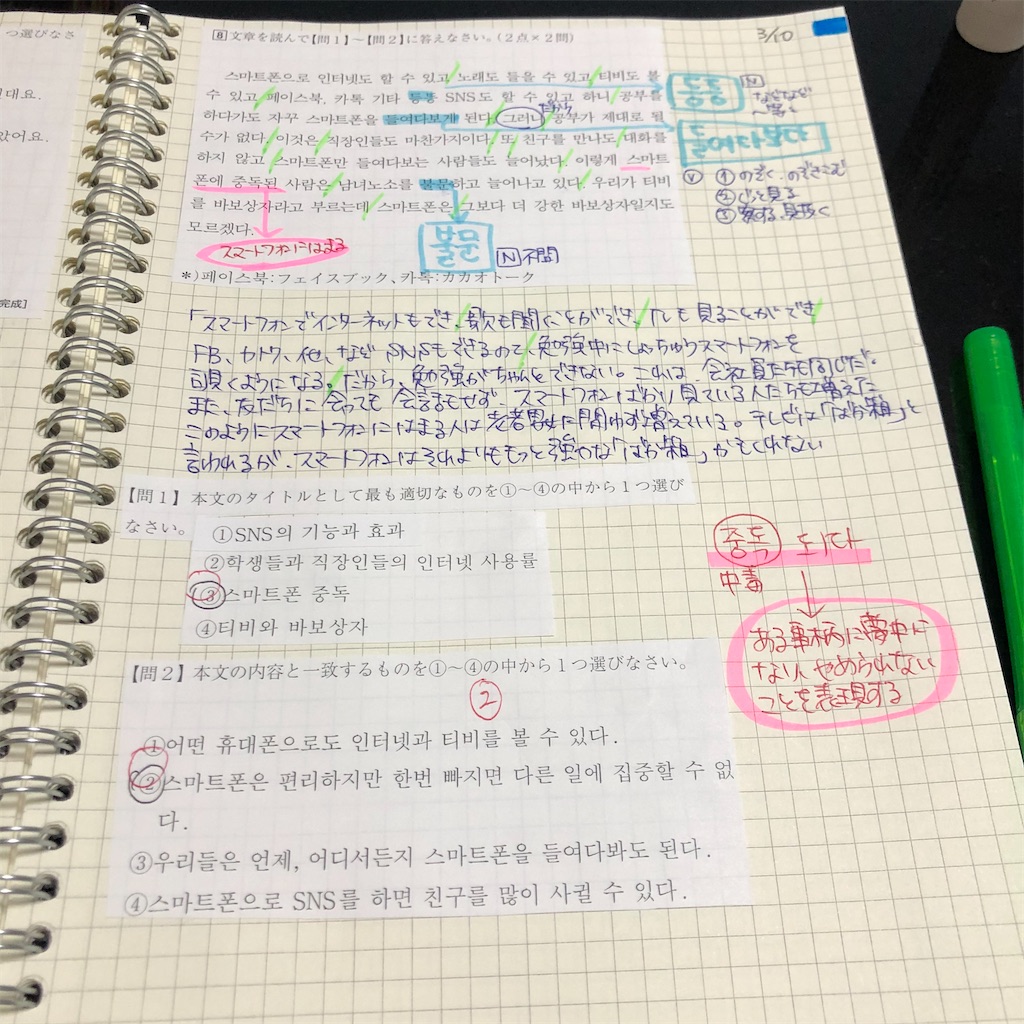 つ選びなさ
대요.
았어요.
完成]
3/10
8 文章を読んで【問1】~【問2】に答えなさい。(2点×2問)
스마트폰으로 인터넷도 할 수 있고 노래도 들을 수 있고 티비도 볼
수 있고 페이스북, 카톡 기타 등등 SNS도 할 수 있고 하니 공부를
하다가도 자꾸 스마트폰을 들여다보게 된다. 그러니 공부가 제대로 될
だから
수가 없다. 이것은 직장인들도 마찬가지이다. 또 친구를 만나도 대화를
하지 않고 스마트폰만 들여다보는 사람들도 늘어났다. 이렇게 스마트
폰에 중독된 사람은 남녀노소를 불문하고 늘어나고 있다. 우리가 티비
를 바보상자라고 부르는데 스마트폰은 그보다 더 강한 바보상자일지도
모르겠다.
등등 N
などなど
들여다보다
V ①のぞく、のぞきこむ
②じっと見る
③察する、見抜く
スマートフォンにはまる
불문 N 不問
*)페이스북:フェイスブック、카톡:カカオトーク
「スマートフォンでインターネットもでき、歌も聞くことができ、TVも見ることができ
FB、カトク、他、などSNSもできるので、勉強中にしょっちゅうスマートフォンを
覗くようになる。だから、勉強がちゃんとできない。これは、会社員たちも同じだ。
また、友だちに会っても会話もせず、スマートフォンばかり見ている人たちも増えた
このようにスマートフォンにはまる人は老若男女に問わず増えている。テレビは「ばか箱」と
言われるが、スマートフォンはそれよりももっと強力な「ばか箱」かもしれない
【問1】本文のタイトルとして最も適切なものを①~④の中から1つ選び
なさい。
①SNS의 기능과 효과
②학생들과 직장인들의 인터넷 사용률
③스마트폰 중독
④티비와 바보상자
중독 되다
中毒
ある事柄に夢中に
なり、やめられない
ことを表現する
【問2】本文の内容と一致するものを①~④の中から1つ選びなさい。
②
①어떤 휴대폰으로도 인터넷과 티비를 볼 수 있다.
②스마트폰은 편리하지만 한번 빠지면 다른 일에 집중할 수 없
다.
③우리들은 언제, 어디서든지 스마트폰을 들여다봐도 된다.
④스마트폰으로 SNS를 하면 친구를 많이 사귈 수 있다.